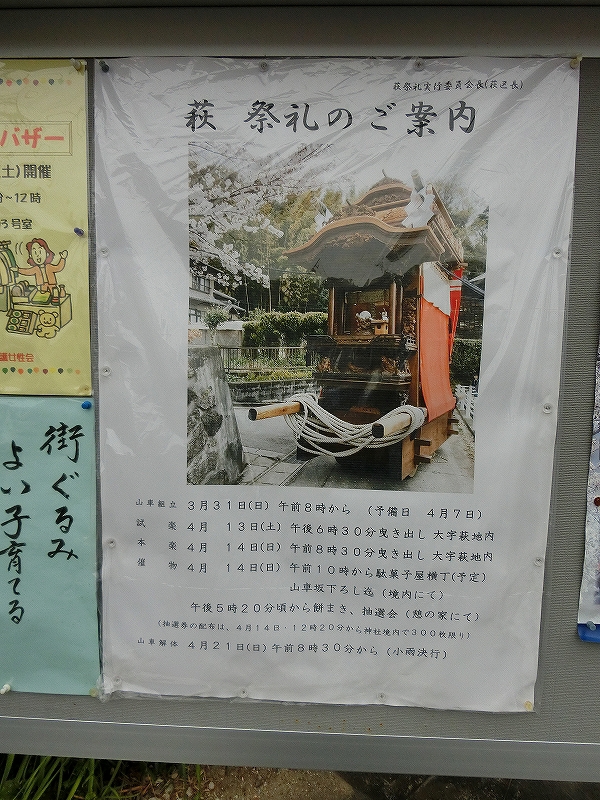 萩祭礼実行委員会長(萩区長)
萩 祭礼のご案内
山車組立 3月31日(日) 午前8時から (予備日 4月7日)
試楽 4月 13日(土) 午後6時30分曳き出し 大字萩地内
本楽 4月 14日(日) 午前8時30分曳き出し 大字萩地内
催物 4月 14日(日) 午前10時から駄菓子屋横丁(予定)
山車坂下ろし迄(境内にて)
午後5時20分頃から餅まき、抽選会(憩の家にて)
(抽選券の配布は、4月14日・12時20分から神社境内で300枚限り)
山車解体 4月21日(日)午前8時30分から(小雨決行)
バザー
(土)開催
分~12時
3号室
街ぐるみ
よい子育てる